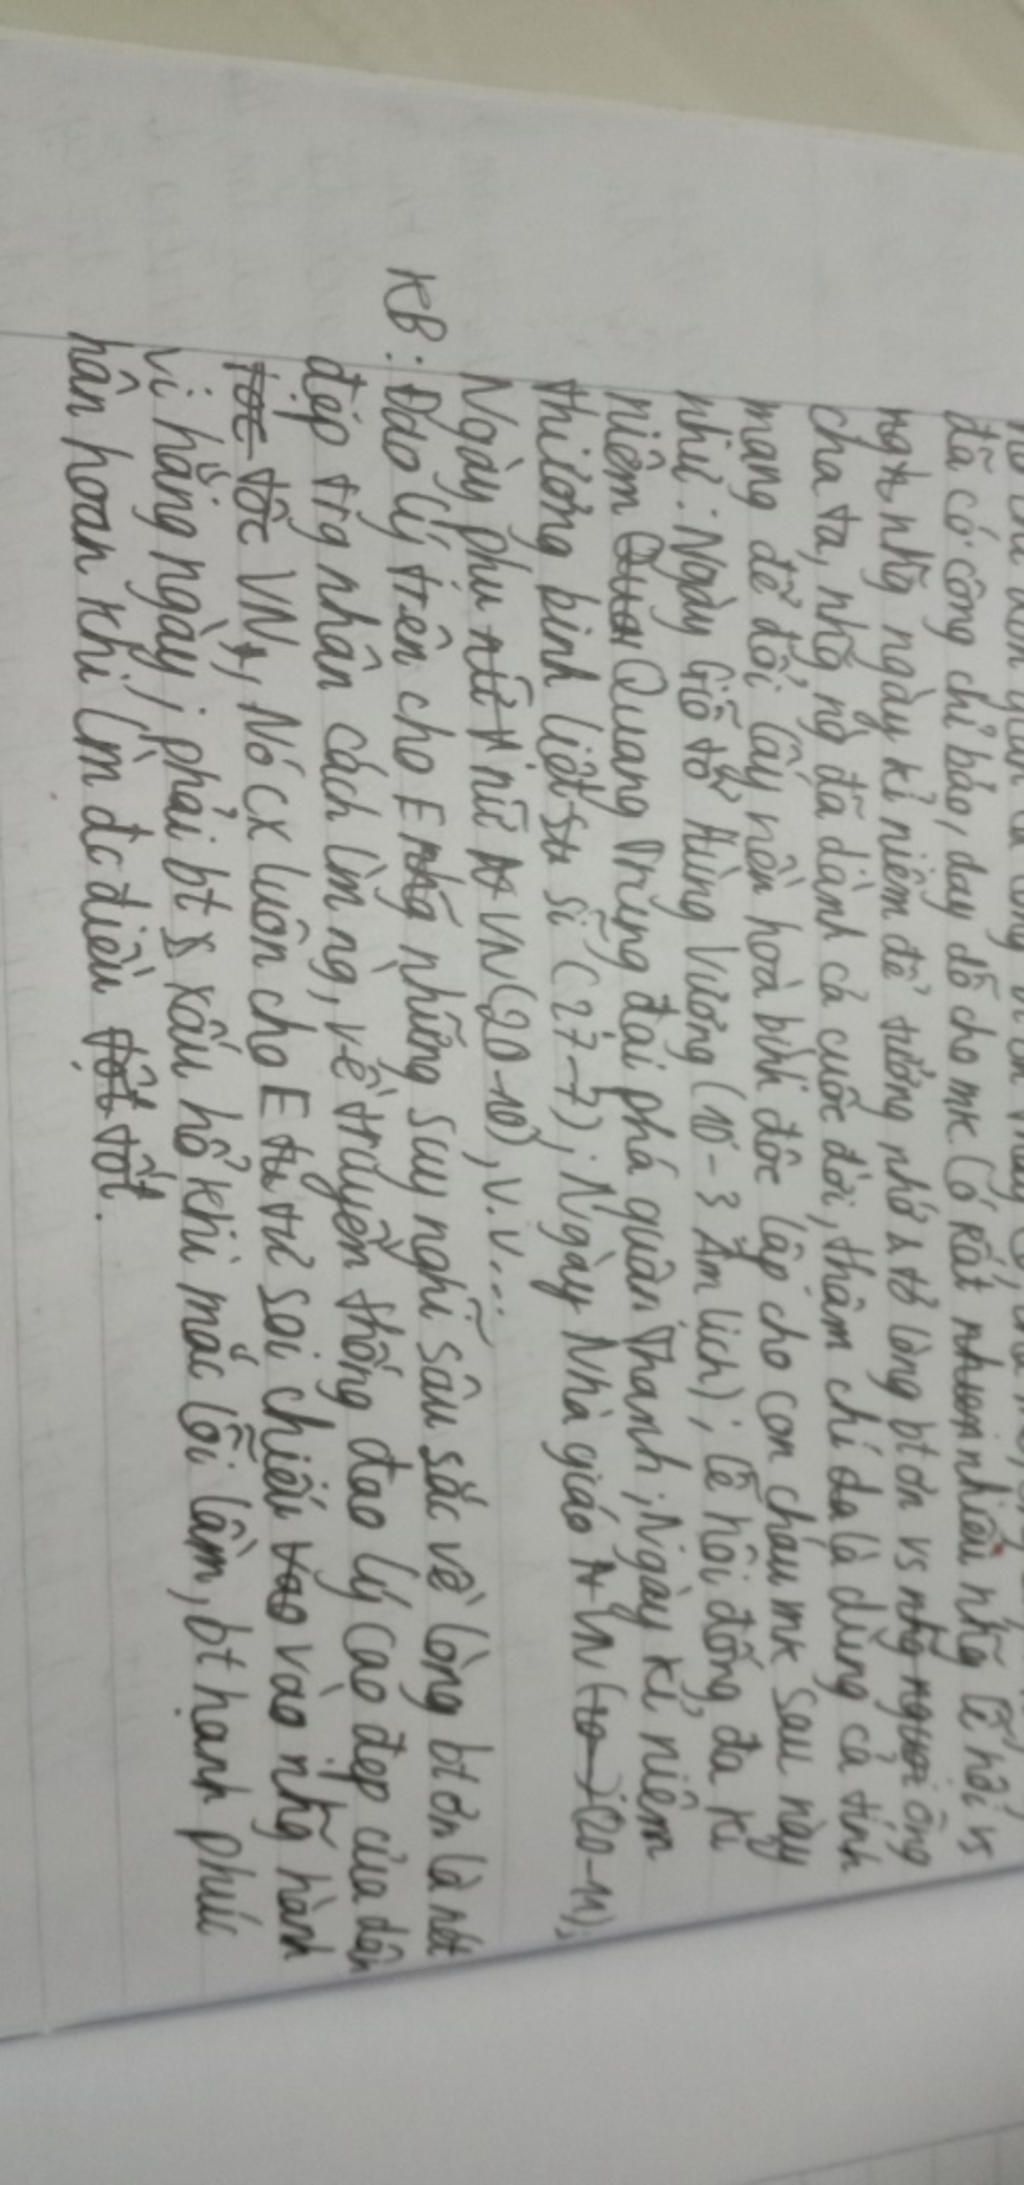 đã có công chỉ bảo, dạy dỗ cho mk. Có rất nhiều nhg lễ hội vs
nhg ngày kỉ niệm để tưởng nhớ & tỏ lòng bt ơn vs ông
cha ta, nhg ng đã dành cả cuộc đời, thậm chí da là dùng cả tính
mạng để đổi lấy nền hoà bình độc lập cho con cháu mk sau này
như: Ngày Giỗ tổ Hùng Vương (10-3 Âm lịch); lễ hội đống đa kỉ
niệm Quang Trung đại phá quân Thanh; Ngày kỉ niệm
thương binh liệt sĩ (27-7); Ngày Nhà giáo VN (20-11);
Ngày phụ nữ VN (20-10), v.v...
KB: Đạo lý trên cho E những suy nghĩ sâu sắc về lòng bt ơn là nét
đẹp trg nhân cách làm ng, về truyền thống đạo lý cao đẹp của dân
tộc VN, Nó cx luôn cho E tự soi chiếu vào nhg hành
vi hằng ngày; phải bt xấu hổ khi mắc lỗi lầm, bt hạnh phúc
hân hoan khi làm đc điều tốt.